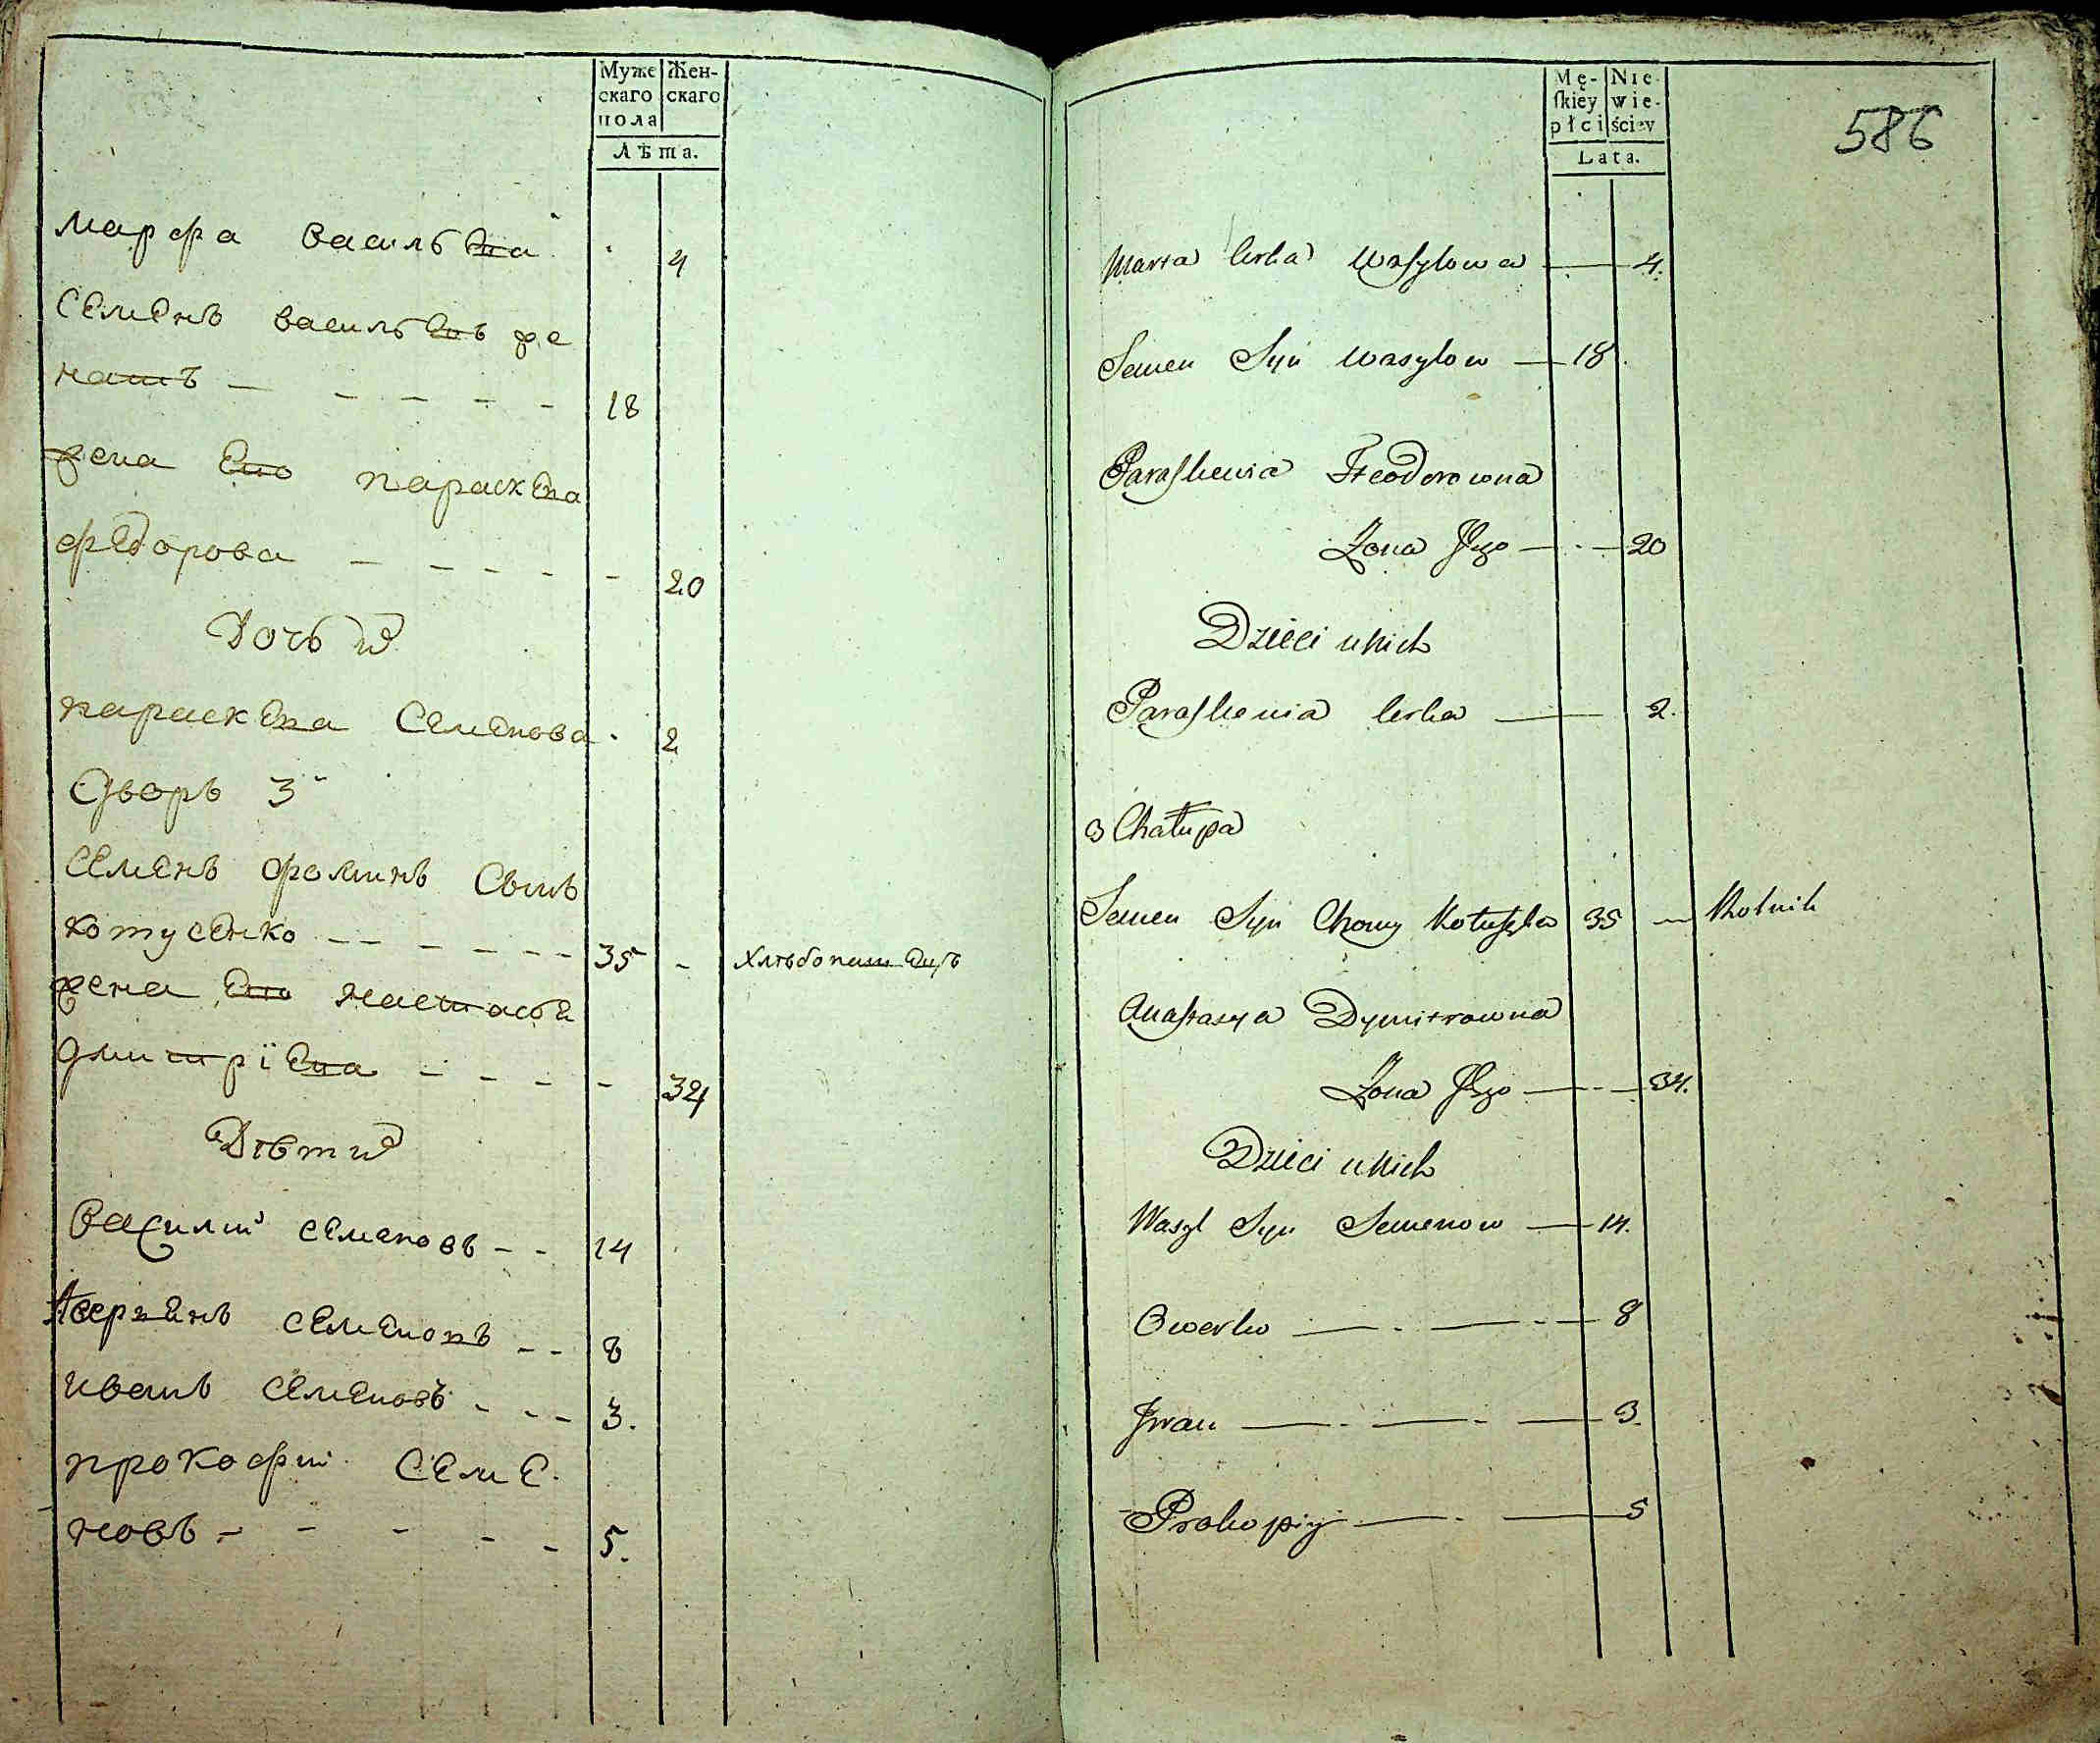 Муже
скаго
пола
Жен-
скаго
Лѣта.
марфа васильева 4
Семенъ васильевъ же
натъ 18
жена Его параскева
федорова 20
Дочь их
параскева Семенова 2
Дворъ 3
Семенъ фоминъ Сынъ
котусенко 35 хлѣбопашецъ
жена Его настасья
дмитрїева 34
Дѣти их
Василий семеновъ 14
Аверкенъ семеновъ 8
иванъ семеновъ 3.
прокофий Семе
новъ 5.
Mę-
ſkiey
płci
Nie-
wie-
ściey
Lata.
586
Marta Corka Wasylowa 4.
Semen Syn Wasylow 18
Paraskewia Fteodorowna
Zona Jego 20
Dzieci u Nich
Paraskewia Corka 2.
3 Chałupa
Semen Syn Chomy 35 Rolnik
Anastasya Dymitrowna
Zona Jego 34.
Dzieci u Nich
Wasyl Syn Semenow 14.
Owerko 8
Jwan 3.
Prokopiy 5